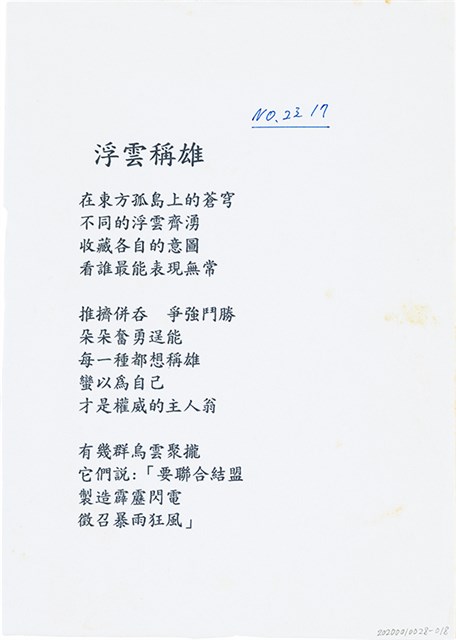 NO.2之17
浮雲稱雄
在東方孤島上的蒼穹
不同的浮雲齊湧
收藏各自的意圖
看誰最能表現無常
推擠併吞　爭強鬥勝
朵朵奮勇逞能
每一種都想稱雄
蠻以爲自己
才是權威的主人翁
有幾群烏雲聚攏
它們説:「要聯合結盟
製造霹靂閃電
徵召暴雨狂風」
20200010028-018